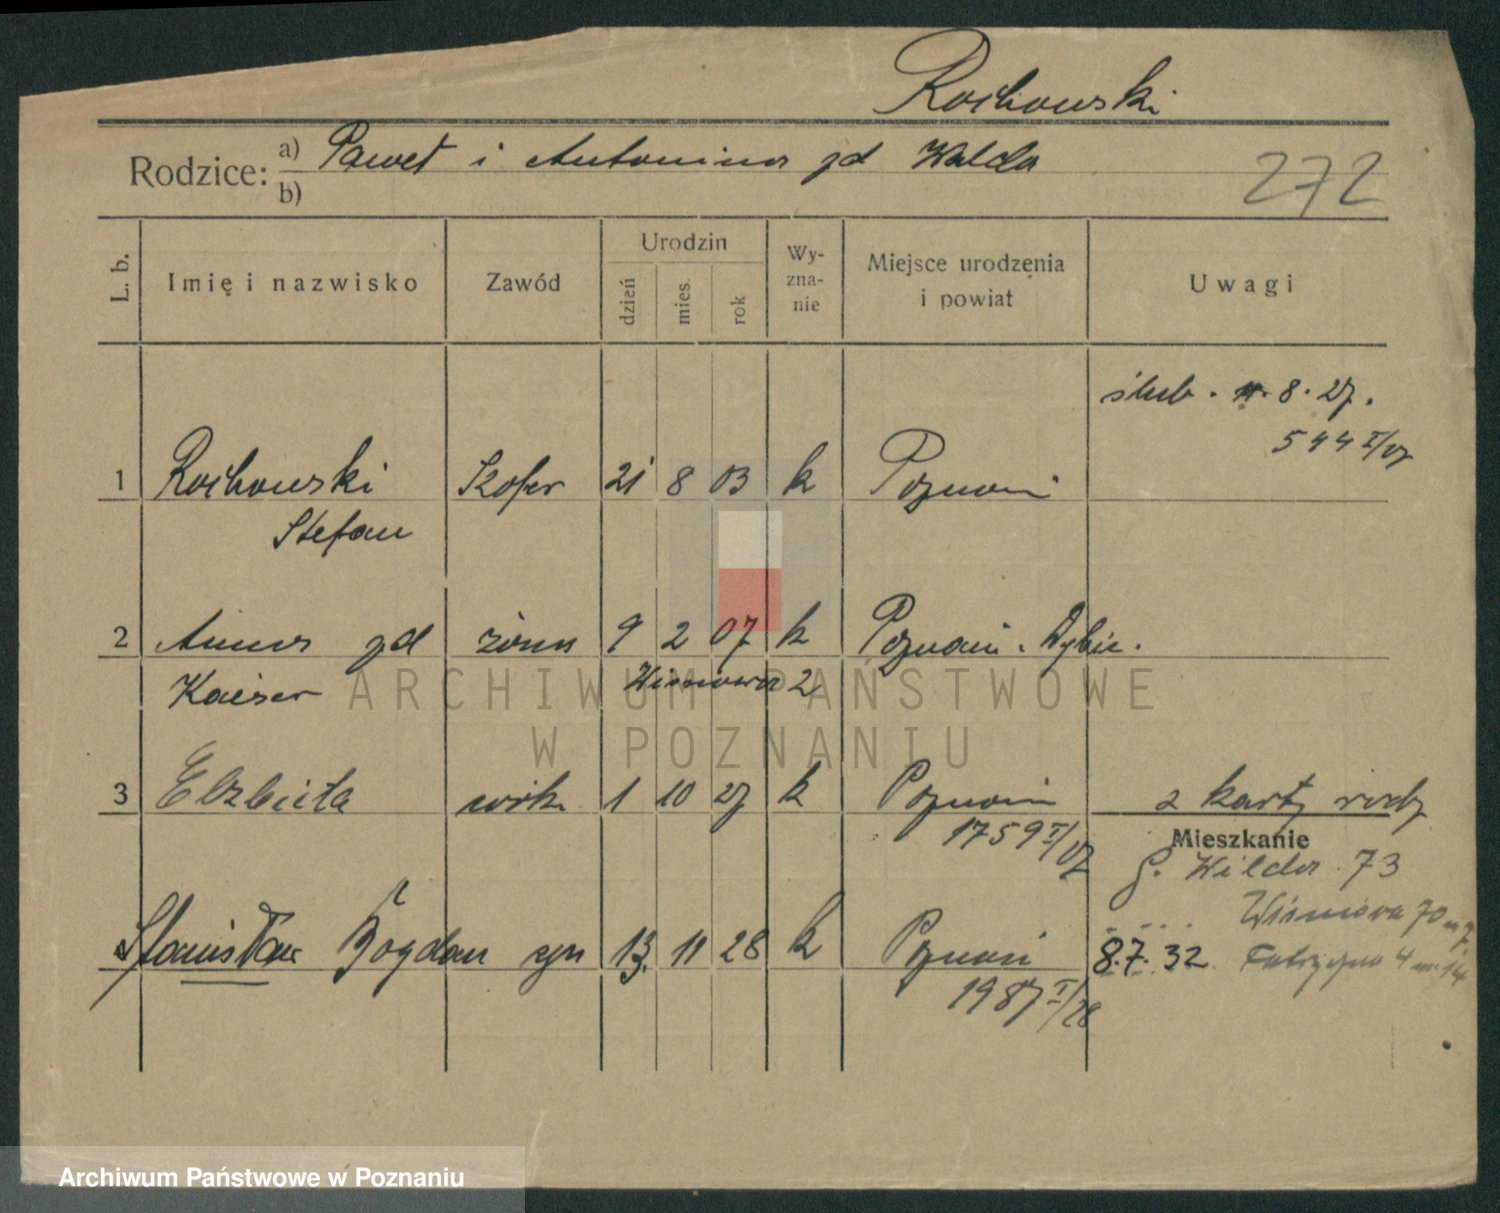 Rochowski
Rodzice: a) Paweł i Antonina zd Walda
b)
272
L. b. Imię i nazwisko Zawód Urodzin dzień mies. rok Wyznanie Miejsce urodzenia i powiat Uwagi
ślub. 8. 27.
544 I/27
1 Rochowski Szofer 21 8 03 k Poznań
Stefan
2 Anna zd żona 9 2 07 k Poznań. Dębiec.
Kaiser Wiśniowa 2
3 Elżbieta córk. 1 10 27 k Poznań z karty rodz
1759 I/27
Mieszkanie
G. Wilda 73
Wiśniowa 70
Stanisław Bogdan syn 13. 11 28 k Poznań 8.7.32 Fabryczna 4 m. 14
1987 I/28
ARCHIWUM PAŃSTWOWE
W POZNANIU
Archiwum Państwowe w Poznaniu